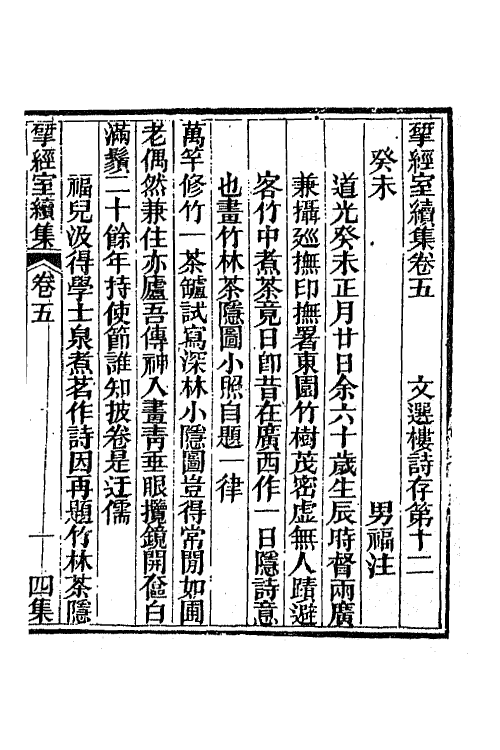 揅經室續集卷五　　　文選樓詩存第十二
癸未　　　　　　　　　　　男福注
道光癸未正月廿日余六十歲生辰時督兩廣
兼攝廵撫印撫署東園竹樹茂密虚無人蹟避
客竹中煮茶竟日卽昔在廣西作一日隱詩意
也畫竹林茶隱圖小照自題一律
萬竿修竹一茶鑪試寫深林小隱圖豈得常閒如圃
老偶然兼住亦廬吾傳神入畫靑垂眼攬鏡開奩白
滿鬚二十餘年持使節誰知披卷是迂儒
福兒汲得學士泉煮茗作詩因再題竹林茶隱
揅經室續集　卷五　一　四集